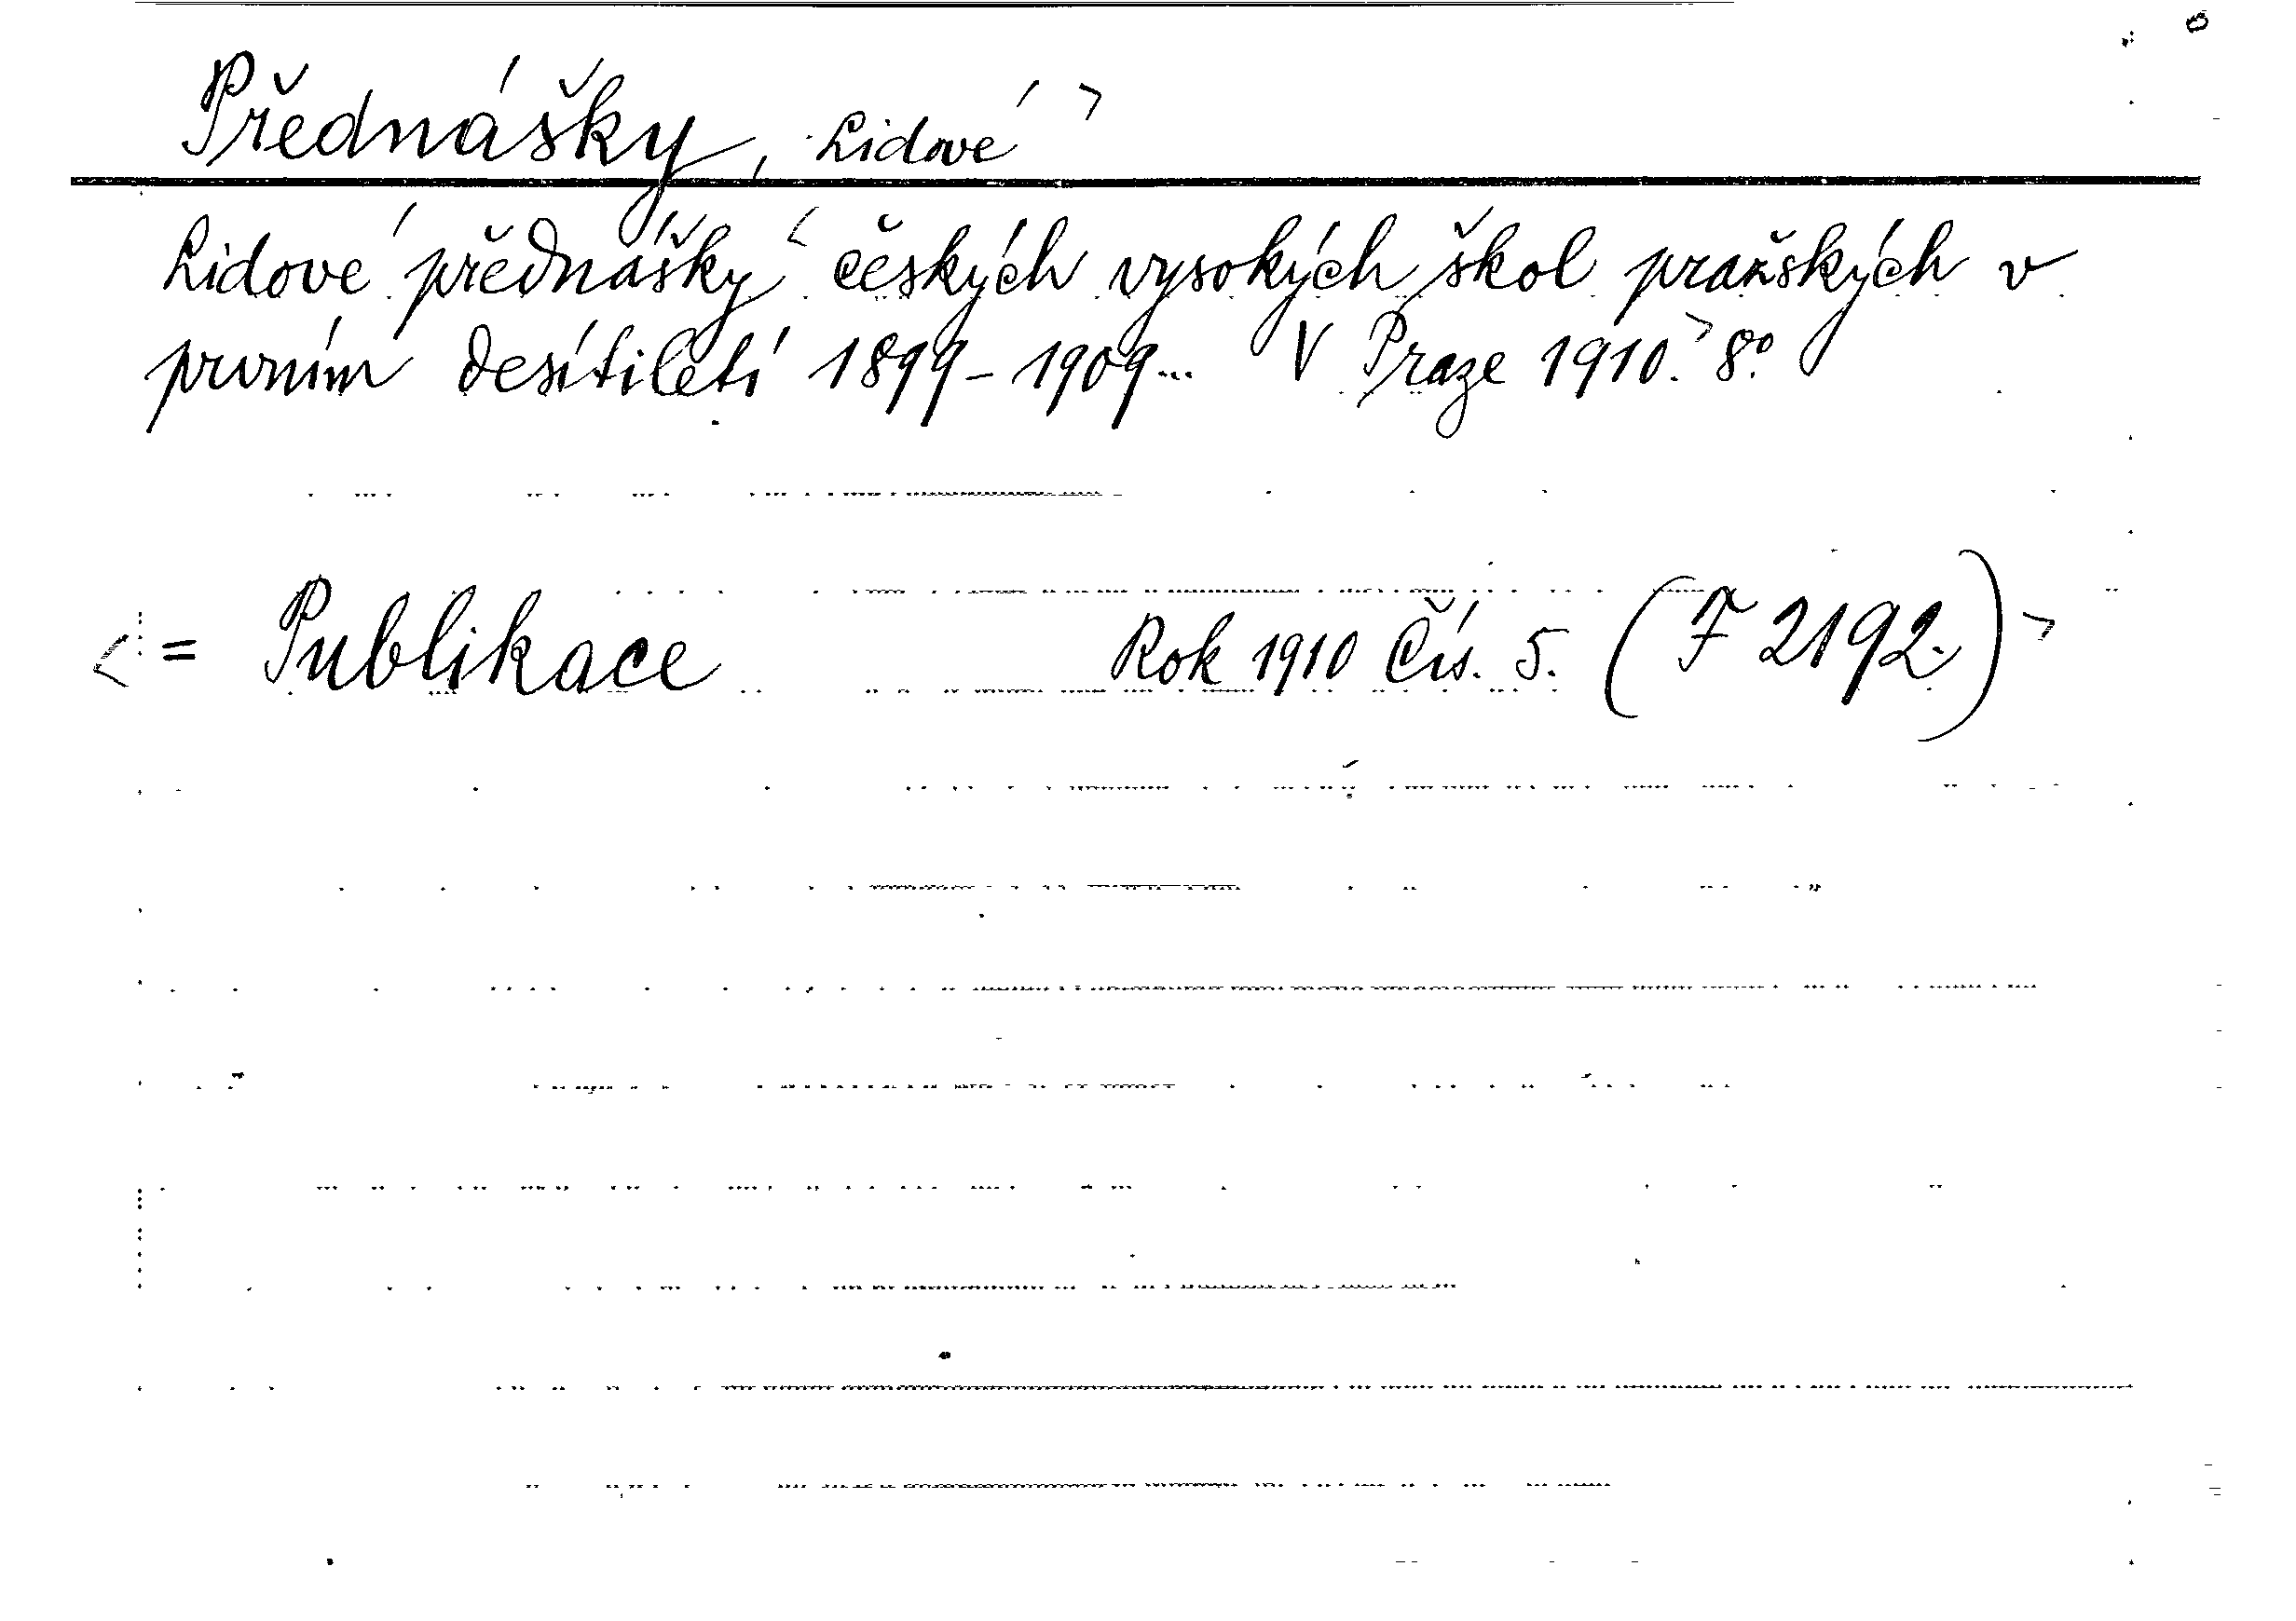 Přednášky, Lidové >
Lidové přednášky < českých vysokých škol pražských v
prvním desítiletí 1899-1909... V Praze 1910. > 8°
< = Publikace Rok 1910 Čís. 5. (F 2192.) >